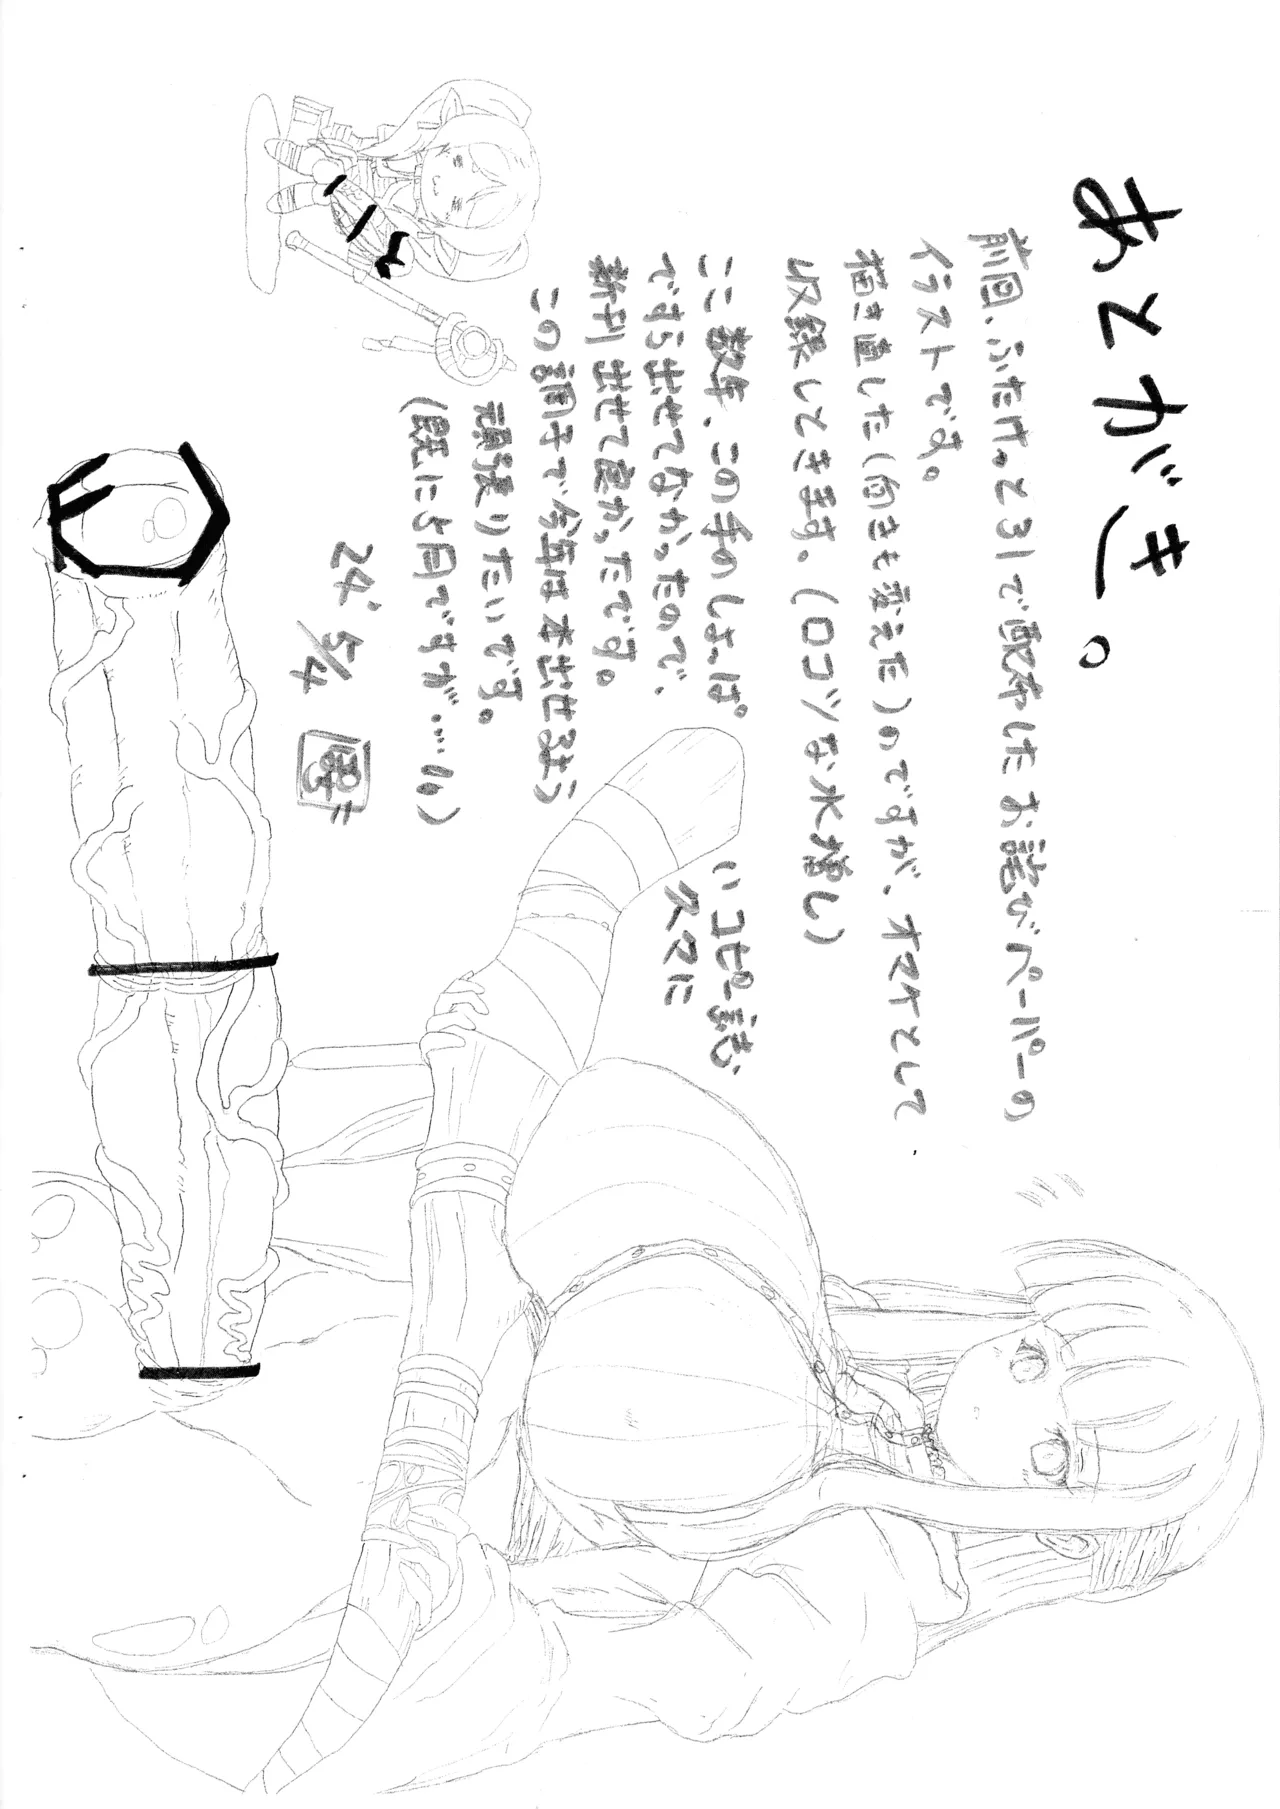 あとがき。
前回、ふたけっと31で配布したお詫びペーパーの
イラストです。
描き直した(向きも変えた)のですが、オマケとして
収録しときます。(ロコツな水増し)
ここ数年、この手のしょっぱい コピー誌も
ですら出せてなかったので、 久々に
新刊出せて良かったです。
この調子で今年は本出せるよう
頑張りたいです。
(既に5月ですが…)
24' 5/4